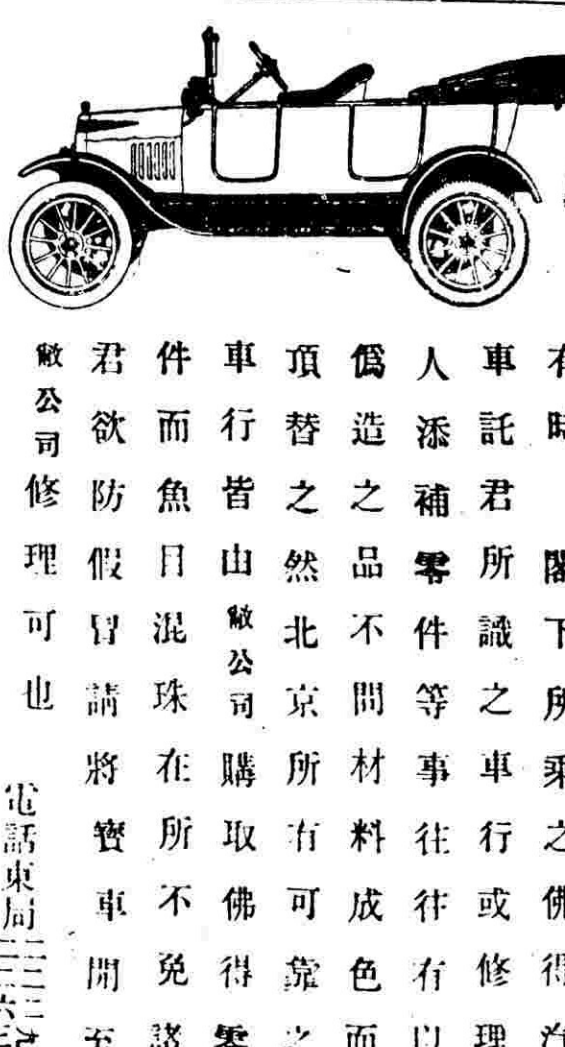 有時閣下所乘之佛得汽
車託君所識之車行或修理
人添補零件等事往往有以
僞造之品不問材料成色而
頂替之然北京所有可靠之
車行皆由敝公司購取佛得零
件而魚目混珠在所不免諸
君欲防假冒請將寶車開至
敝公司修理可也
電話東局